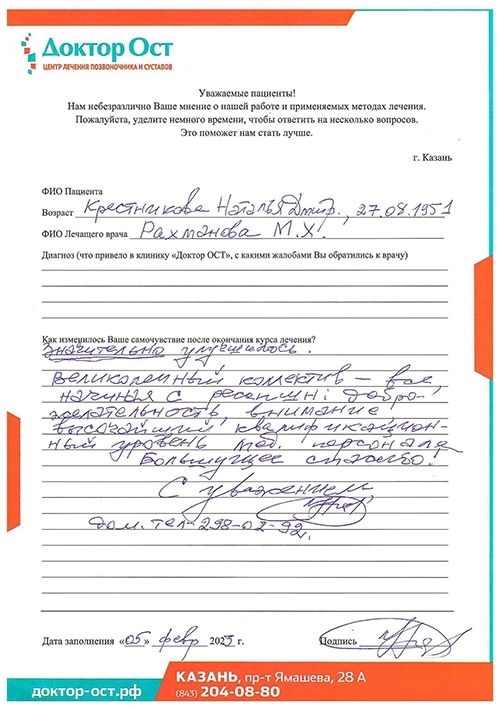 Доктор Ост
ЦЕНТР ЛЕЧЕНИЯ ПОЗВОНОЧНИКА И СУСТАВОВ
Уважаемые пациенты!
Нам небезразлично Ваше мнение о нашей работе и применяемых методах лечения.
Пожалуйста, уделите немного времени, чтобы ответить на несколько вопросов.
Это поможет нам стать лучше.
г. Казань
ФИО Пациента
Возраст Крестникова Наталья Дмитр., 27.08.1951
ФИО Лечащего врача Рахманова М.Х.
Диагноз (что привело в клинику «Доктор ОСТ», с какими жалобами Вы обратились к врачу)
Как изменилось Ваше самочувствие после окончания курса лечения?
Значительно улучшилось.
Великолепный коллектив – все,
начиная с ресепшн: добро-
желательность, внимание,
высочайший квалификацион-
ный уровень мед. персонала
Большущее спасибо!
С уважением
дом. тел-298-02-92.
Дата заполнения «05» февр 2023
Подпись
доктор-ост.рф
КАЗАНЬ, пр-т Ямашева, 28 А
(843) 204-08-80